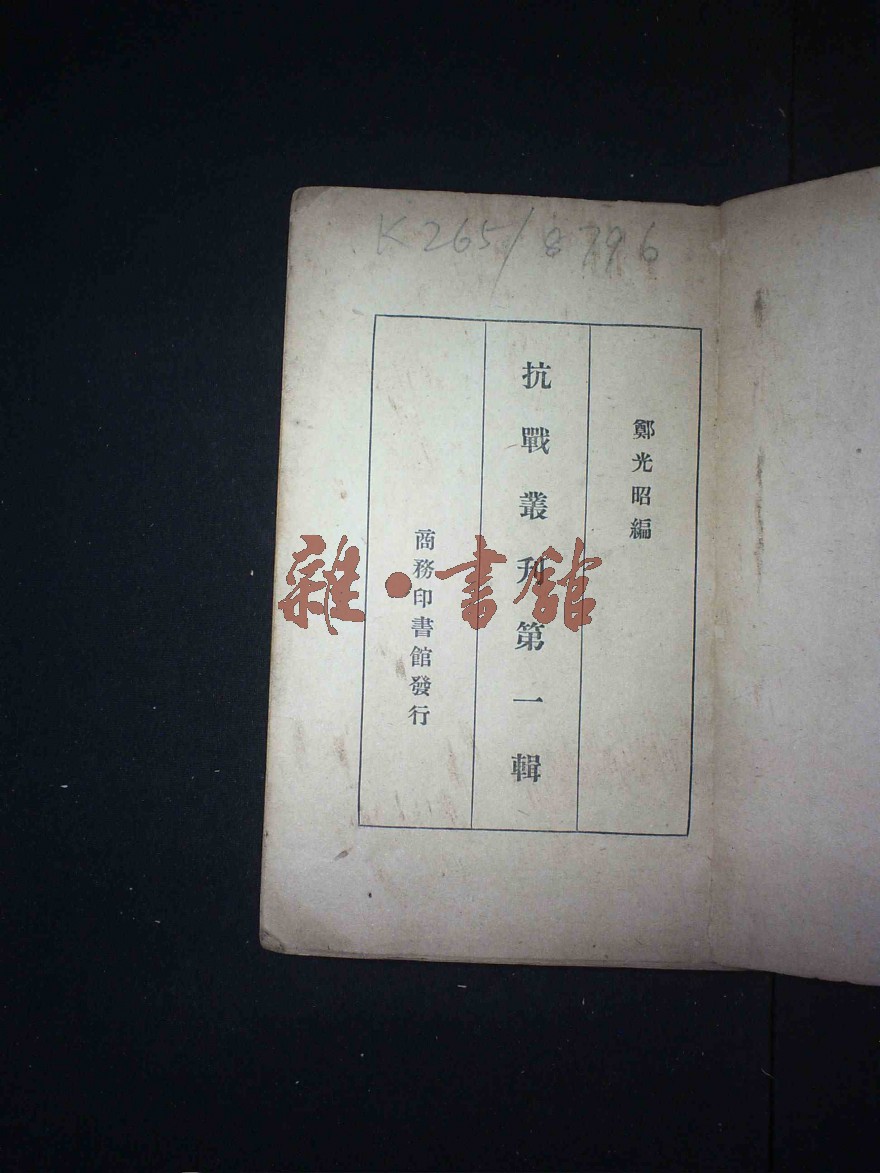 K265/8796
鄭光昭編
抗戰叢刊第一輯
商務印書館發行
雜·書館